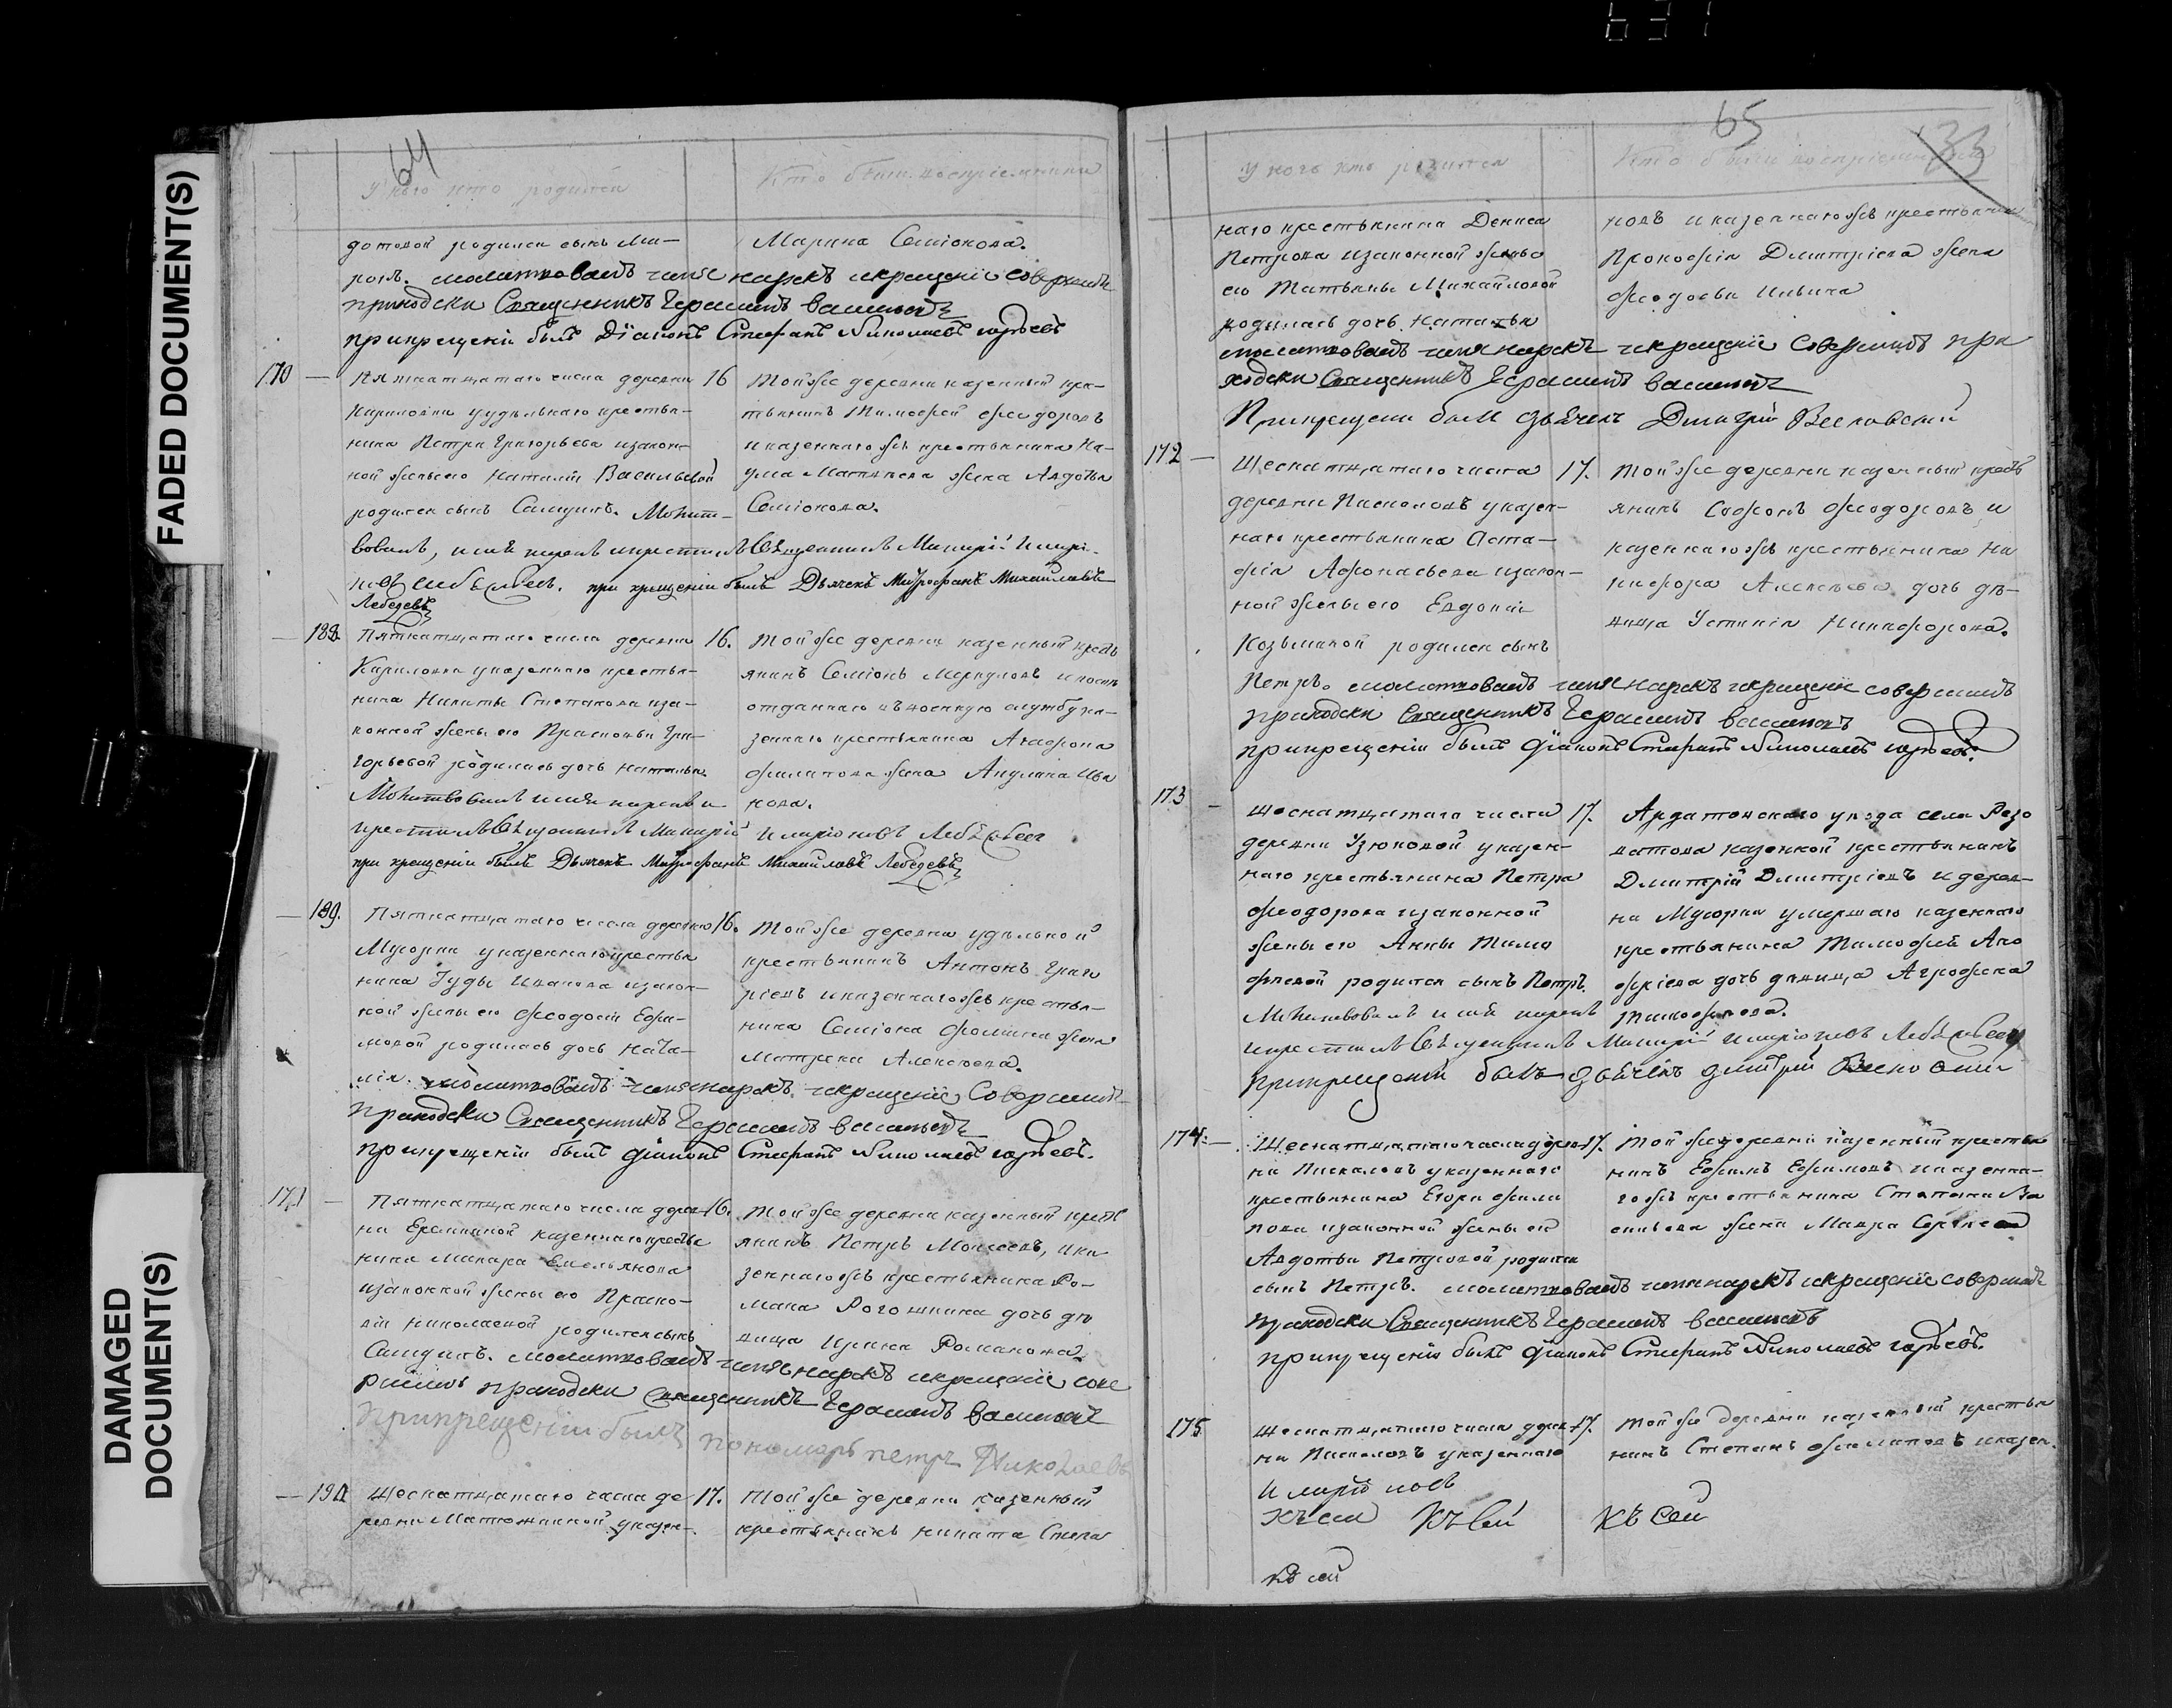 631
FADED DOCUMENT(S)
DAMAGED DOCUMENT(S)
64
У кого кто родился
Кто были воспріемники
дотовой родился сынъ Ми-
ронъ. молитвовалъ имя нарекъ и крещеніе совершилъ
приходски Священникъ Герасимъ Васильевъ
при крещеніи былъ Діаконъ Стефанъ Николаевъ
Марина Семіонова.
170
Пятнатцатаго числа деревни
Кириловки у удѣльнаго крестья-
нина Петра Григорьева изакон-
ной жены его Наталіи Васильевой
родился сынъ Самуилъ. Молит-
вовалъ, имя нарекъ и крестилъ Священникъ Макарій Иларі-
оновъ. при крещеніи былъ Дьячекъ Митрофанъ Михайловъ
Лебедевъ
16
Той же деревни казенный кре-
стьянинъ Тимофей Феодоровъ
и казеннаго жъ крестьянина На-
ума Матвѣева жена Авдотья
Семіонова.
188.
Пятнатцатаго числа деревни
Кириловки у казеннаго крестья-
нина Никиты Степанова иза-
конной жены его Прасковьи Гри-
горьевой родилась дочь Наталья.
Молитвовалъ имя нарекъ и
крестилъ Священникъ Макарій Иларіоновъ
при крещеніи былъ Дьячекъ Митрофанъ Михайловъ Лебедевъ
16.
Той же деревни казенный крестъ
янинъ Семіонъ Меркуловъ и
отданнаго въ военную службу ка-
зеннаго крестьянина Агафона
Филипова жена Акулина Ива
нова.
189.
Пятнатцатаго числа деревни
Мусорки у казеннаго крестья
нина Іуды Иванова изакон-
ной жены его Феодосіи Ефи-
мовой родилась дочь Ната-
лія. молитвовалъ имя нарекъ и крещеніе Совершилъ
приходски Священникъ Герасимъ Васильевъ
при крещеніи былъ діаконъ Стефанъ Николаевъ
16.
Той же деревни удѣльной
крестьянинъ Антонъ Григо
ріевъ и казеннаго жъ крестья-
нина Семіона Фомина жена
Матрена Алексѣева.
171
Пятнатцатаго числа дерев-
ни Еремкиной казеннаго крестья
нина Макара Емельянова
изаконной жены его Праско-
віи Николаевой родился сынъ
Самуилъ. молитвовалъ имя нарекъ и крещеніе сове
ршилъ приходски Священникъ Герасимъ Васильевъ
При крещеніи былъ пономарь петръ Николаевъ
16.
Той же деревни казенный крестъ
янинъ Петръ Моисеевъ, и ка
зеннаго жъ крестьянина Ро-
мана Рогожкина дочь дѣ
вица Ирина Романова.
190
Шеснатцатаго числа де
ревни Матюшкиной у казен-
17.
Той же деревни казенный
крестьянинъ Никита Степа
65
33
У кого кто родился
Кто были воспріемники
наго крестьянина Дениса
Петрова изаконной жены
его Татьяны Михайловой
родилась дочь Наталья
молитвовалъ имя нарекъ и крещеніе Совершилъ при
ходски Священникъ Герасимъ Васильевъ
При крещеніи былъ дьячекъ Дмитрій
новъ и казеннаго жъ крестьянина
Прокофія Дмитріева жена
Феодосья Ильина
172
Шеснатцатаго числа
деревни Пискаловъ у казен-
наго крестьянина Аста-
фія Афонасьева изакон-
ной жены его Евдокіи
Козьминой родился сынъ
Петръ. молитвовалъ имя нарекъ и крещеніе совершилъ
приходски Священникъ Герасимъ Васильевъ
при крещеніи былъ діаконъ Стефанъ Николаевъ
17.
Той же деревни казенный крестъ
янинъ Софонъ Феодоровъ и
казеннаго жъ крестьянина Ни
кифора Алексѣева дочь дѣ-
вица Устинія Никифорова.
173
Шеснатцатаго числа
деревни Узюковой у казен-
наго крестьянина Петра
Феодорова изаконной
жены его Анны Тимо
феевой родился сынъ Петръ.
Молитвовалъ имя нарекъ
и крестилъ Священникъ Макарій Иларіоновъ
При крещеніи былъ дьячекъ Дмитрій
17.
Ардатовскаго уезда села Резо
ватова казенной крестьянинъ
Дмитрій Дмитріевъ и дерев-
ни Мусорки умершаго казеннаго
крестьянина Тимофея Ано
фріева дочь дѣвица Агрофена
Тимофеева.
174.
Шеснатцатаго числа дерев-
ни Пискаловъ у казеннаго
крестьянина Егора Фили
пова изаконной жены его
Авдотьи Петровой родился
сынъ Петръ. молитвовалъ имя нарекъ и крещеніе совершилъ
приходски Священникъ Герасимъ Васильевъ
при крещеніи былъ діаконъ Стефанъ Николаевъ
17.
Той же деревни казенный крестья
нинъ Ефимъ Ефимовъ и казенна-
го жъ крестьянина Степана Ва
сильева жена Мавра Сергѣева
175
Шеснатцатаго числа дерев-
ни Пискаловъ у казеннаго
17.
Той же деревни казенный крестья
нинъ Степанъ Филиповъ и казен.
Иларіоновъ
Къ сей Къ сей Къ сей
Къ сей